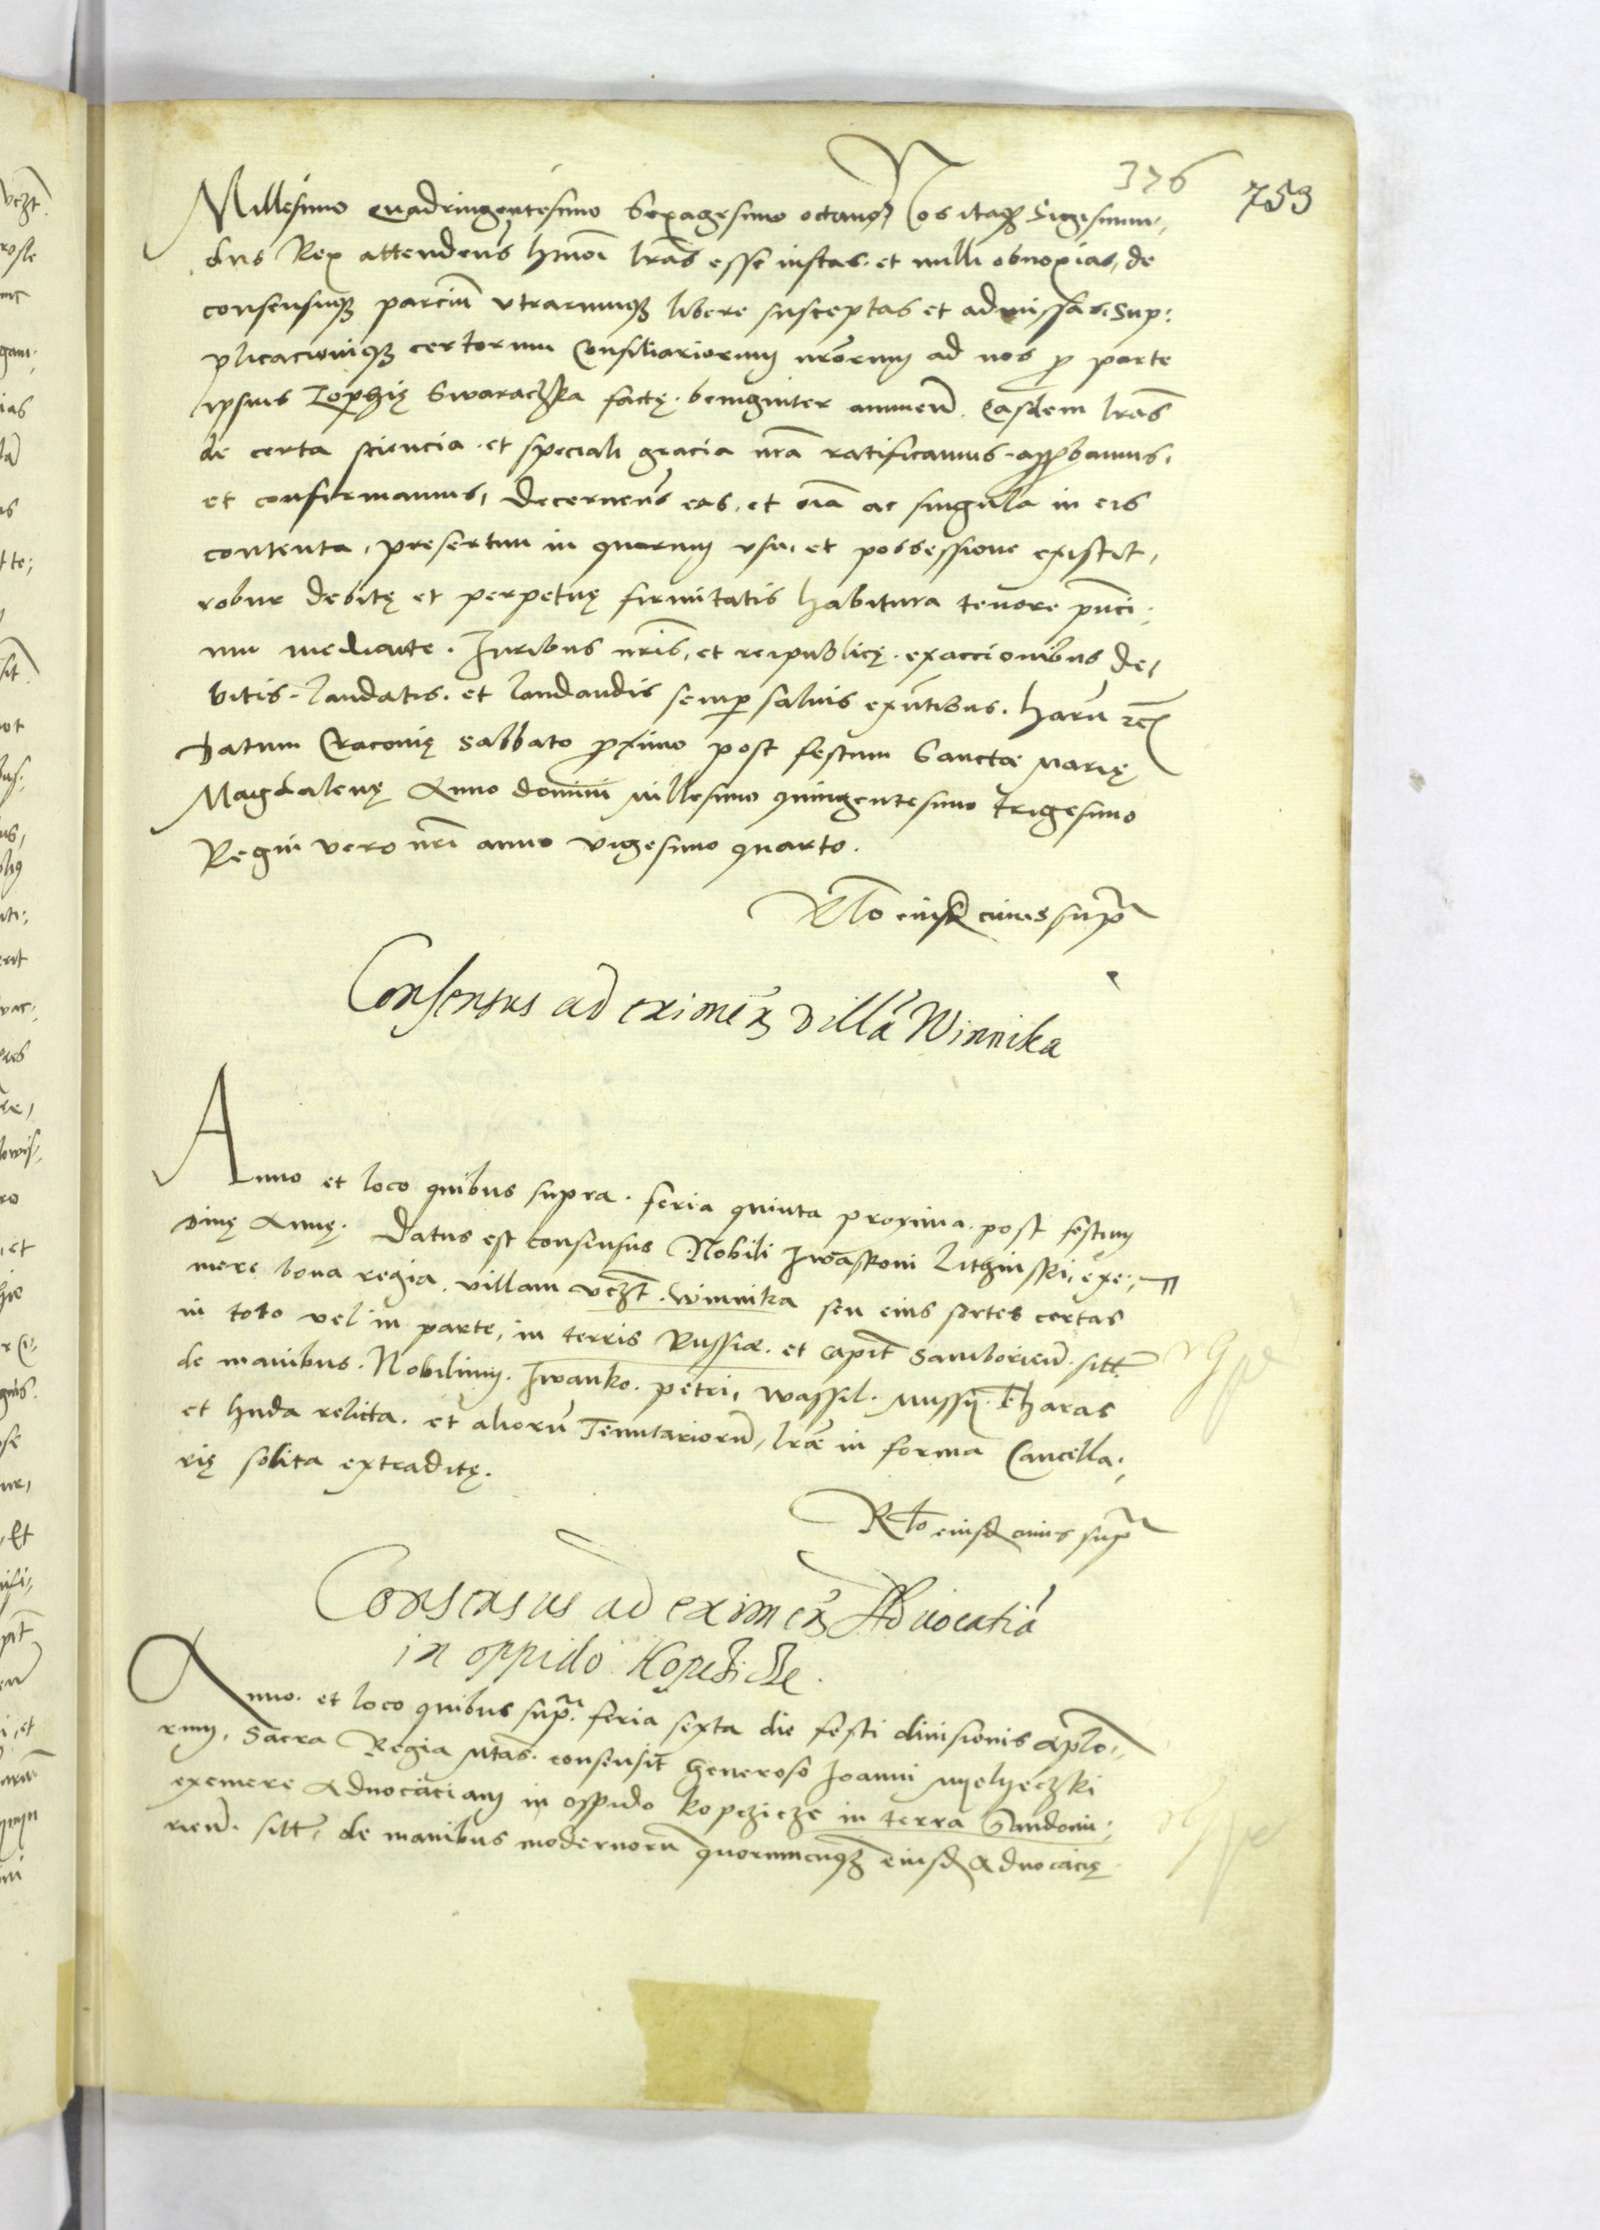 376 753
Millesimo quadringentesimo sexagesimo octavo, Nos itaqz Sigismun,
dus Rex attendens hmoi lras esse iustas. et nulli obnoxias, de
consensuqz parcium vtrarumqz libere susceptas et admissas, Sup:
plicacioniqz certorum Consiliariorum nrorum ad nos p parte
ipsius Zophię Swaraczka factę. benigniter annuen. Easdem lras
de certa sciencia. et speciali gracia nra ratificamus. approbamus,
et confirmamus, decernens eas. et oia ac singula in eis
contenta, presertim in quorum vsu, et possessione existit,
robur debitę et perpetuę firmitatis habitura tenore pnci:
um mediante. Iuribus nris, et reipublicę. exaccionibus de,
bitis. laudatis. et laudandis semp salvis exntibus. harum
Datum Cracovię Sabbato proximo post festum Sanctæ Marię
Magdalenę Anno domini millesimo quingentesimo trigesimo
Regni vero nri anno vigesimo quarto.
Rlo eiusd cuius supra
Consensus ad eximen villa Winnika
Anno et loco quibus supra. feria quinta proxima. post festum
divę Annę. Datus est consensus Nobili Iwasskoni Lithinsski, exi:,
mere bona regia. villam vczt. Winnika seu eius sortes certas
in toto vel in parte, in terris Russiæ. et Capit Samborien. sitt
de manibus. Nobilium. Iwanko. Petri, Wassil. Mussij. Tharas
et hnda relicta. et aliorum Tenutariorum, lræ in forma Cancella:,
rię solita extraditę.
Rlo eiusd cuius supra
Consensus ad eximen Advocatia
in oppido Kopcdicze.
Anno. et loco quibus supra. feria sexta die festi divisionis aplo:,
rum, Sacra Regia Mtas. consensit Generoso Joanni Myelyeczki
eximere Advocaciam in oppido Kopczicze in terra Sandomi:,
rien. sitt, de manibus modernorum quorumcunqz eiusd Advocacię